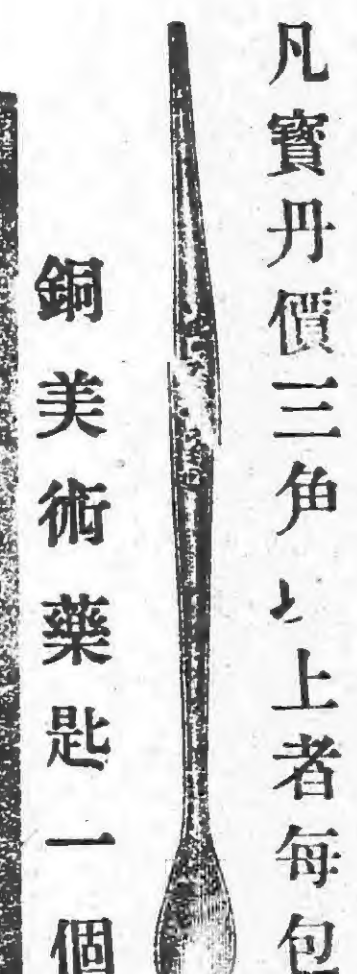 凡寶丹價三角以上者每包
銅美術藥匙一個